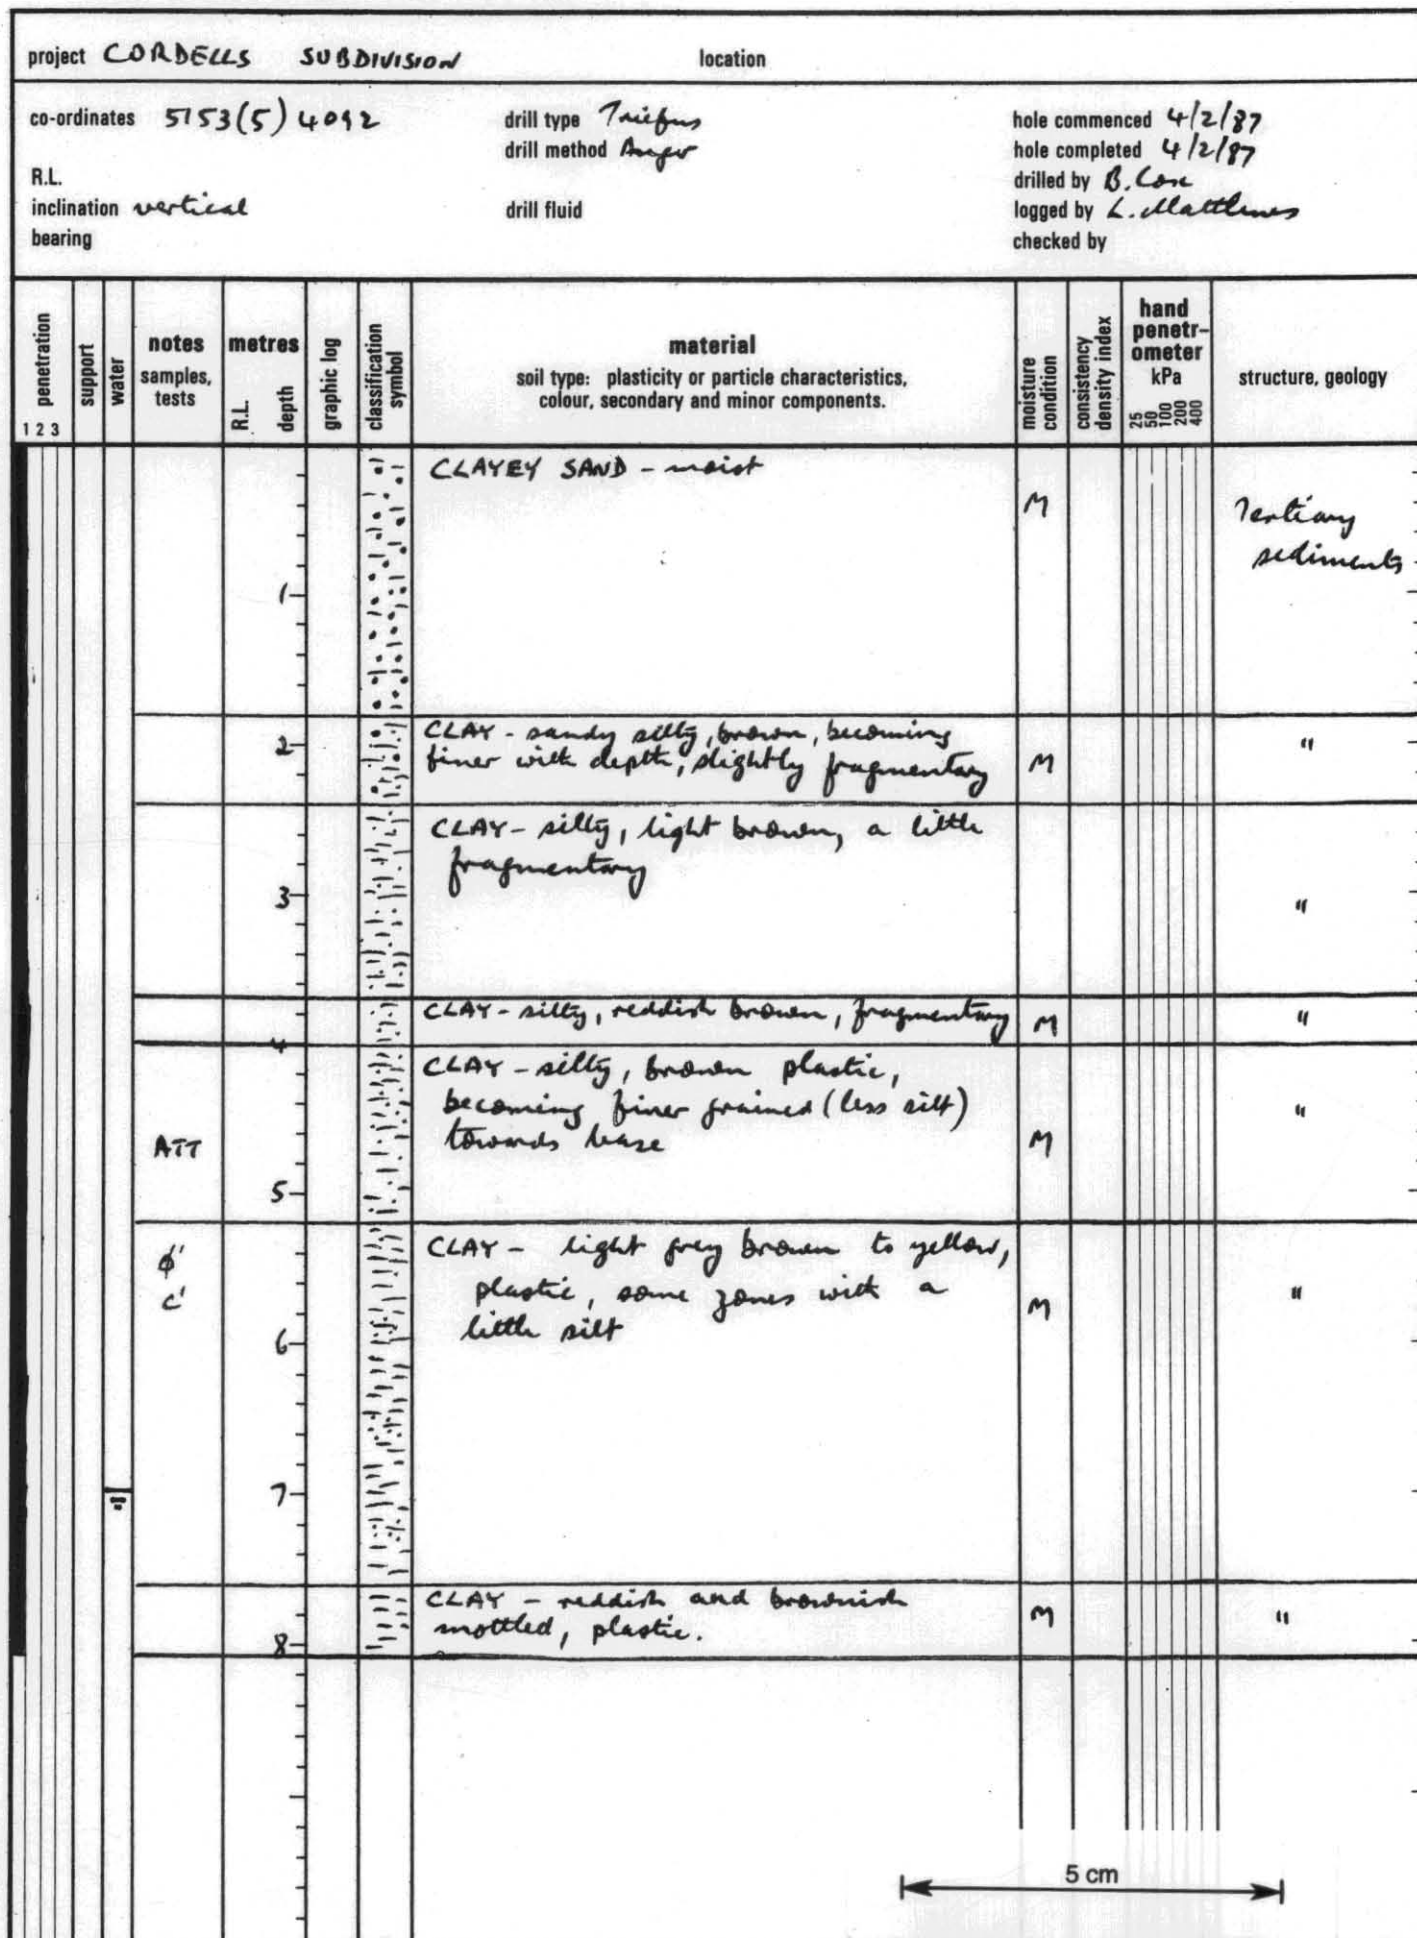 project CORDELLS SUBDIVISION location
co-ordinates 5153(5)4092 drill type Triefus hole commenced 4/2/87
drill method Auger hole completed 4/2/87
R.L. drilled by B. Cox
inclination vertical drill fluid logged by L. Matthews
bearing checked by
penetration
1 2 3
support
water
notes
samples,
tests
metres
R.L.
depth
graphic log
classification
symbol
material
soil type: plasticity or particle characteristics,
colour, secondary and minor components.
moisture
condition
consistency
density index
hand
penetr-
ometer
kPa
25
50
100
200
400
structure, geology
CLAYEY SAND - moist
M
Tertiary
sediments
1
2
CLAY - sandy silty, brown, becoming
finer with depth, slightly fragmentary
M
"
CLAY - silty, light brown, a little
fragmentary
3
"
CLAY - silty, reddish brown, fragmentary M "
4
CLAY - silty, brown plastic,
becoming finer grained (less silt) "
towards base
ATT
M
5
CLAY - light grey brown to yellow,
φ'
plastic, some zones with a
c'
M
"
little silt
6
7
CLAY - reddish and brownish
mottled, plastic.
M
"
8
5 cm